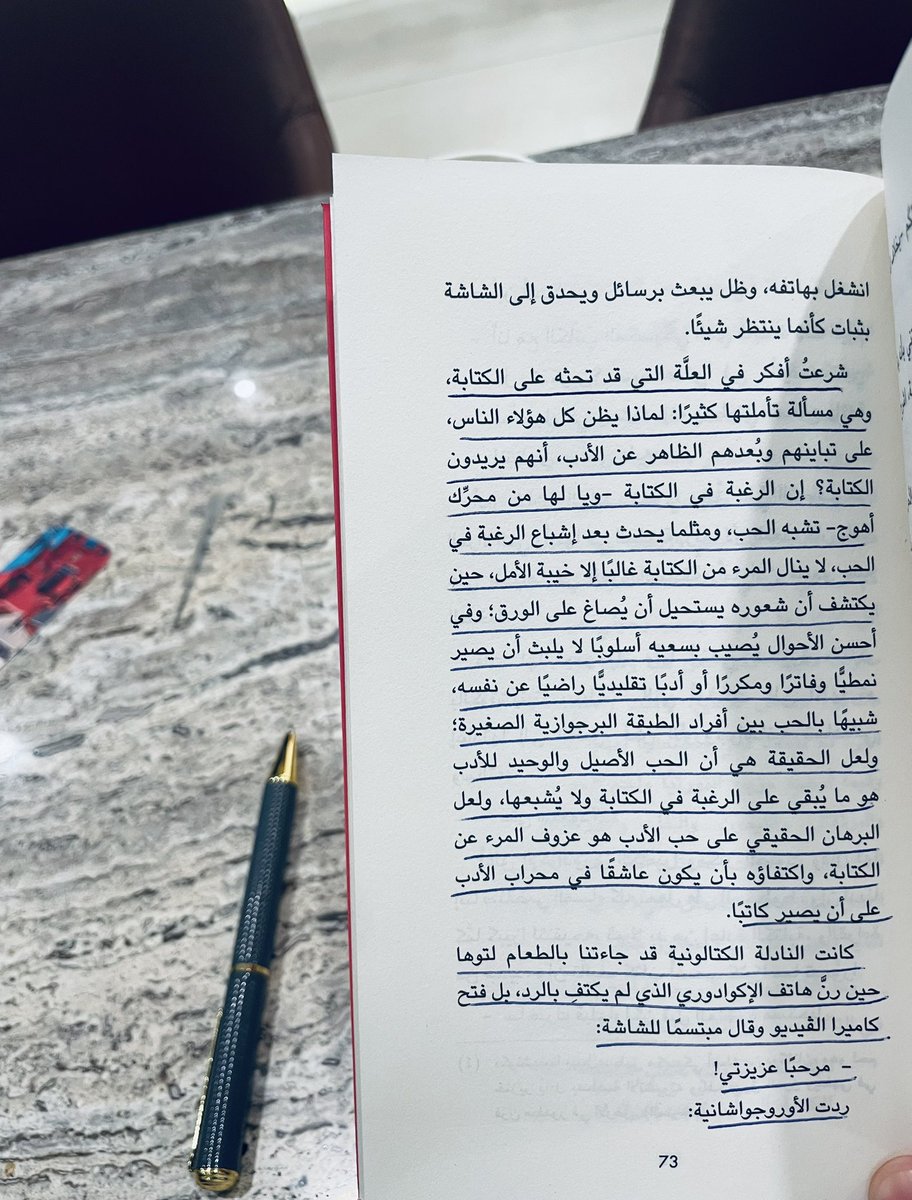 انشغل بهاتفه، وظل يبعث برسائل ويحدق إلى الشاشة
بثبات كأنما ينتظر شيئًا.
شرعتُ أفكر في العلَّة التي قد تحثه على الكتابة،
وهي مسألة تأملتها كثيرًا: لماذا يظن كل هؤلاء الناس،
على تباينهم وبُعدهم الظاهر عن الأدب، أنهم يريدون
الكتابة؟ إن الرغبة في الكتابة –ويا لها من محرِّك
أهوج– تشبه الحب، ومثلما يحدث بعد إشباع الرغبة في
الحب، لا ينال المرء من الكتابة غالبًا إلا خيبة الأمل، حين
يكتشف أن شعوره يستحيل أن يُصاغ على الورق؛ وفي
أحسن الأحوال يُصيب بسعيه أسلوبًا لا يلبث أن يصير
نمطيًّا وفاترًا ومكررًا أو أدبًا تقليديًّا راضيًا عن نفسه،
شبيهًا بالحب بين أفراد الطبقة البرجوازية الصغيرة؛
ولعل الحقيقة هي أن الحب الأصيل والوحيد للأدب
هو ما يُبقي على الرغبة في الكتابة ولا يُشبعها، ولعل
البرهان الحقيقي على حب الأدب هو عزوف المرء عن
الكتابة، واكتفاؤه بأن يكون عاشقًا في محراب الأدب
على أن يصير كاتبًا.
كانت النادلة الكتالونية قد جاءتنا بالطعام لتوها
حين رنَّ هاتف الإكوادوري الذي لم يكتفِ بالرد، بل فتح
كاميرا الڤيديو وقال مبتسمًا للشاشة:
– مرحبًا عزيزتي!
ردت الأوروجواشانية:
73